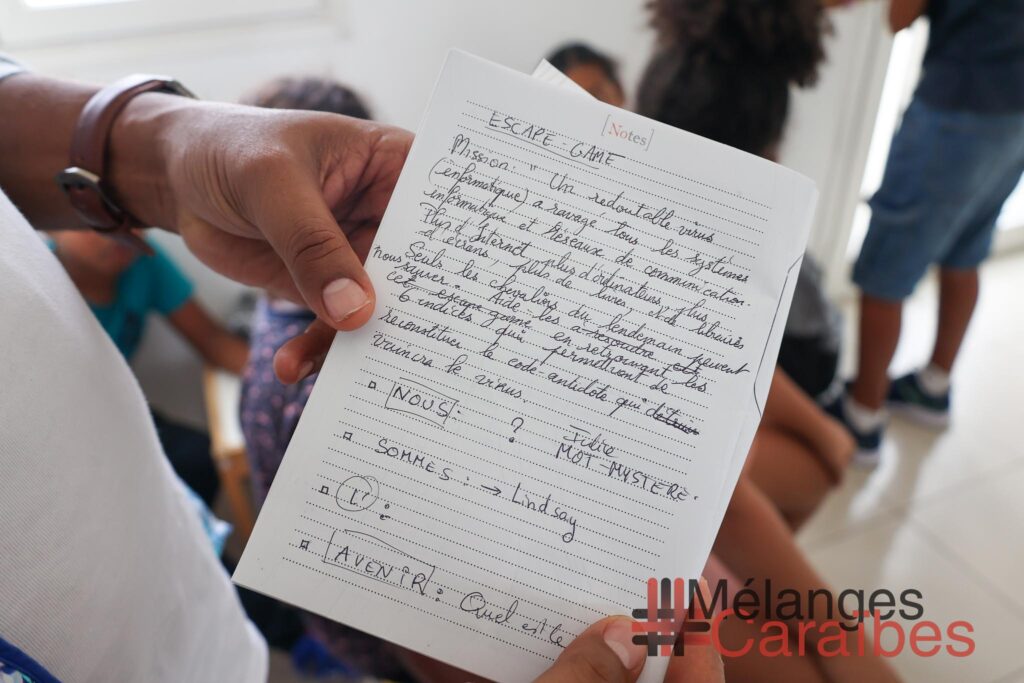 [Notes]
ESCAPE-GAME
Mission: " Un redoutable virus
(informatique) a ravagé tous les systèmes
informatique et Réseaux de communication.
Plus d'Internet, plus d'ordinateurs, plus
d'écrans, plus de livres, de librairies
Seuls les chevaliers du lendemain peuvent
nous sauver. Aide les a résoudre
cet escape game en retrouvant les
6 indices qui permettront de
reconstituer le code-antidote qui
vaincra le virus.
NOUS: ? Filtre
MOT-MYSTERE.
SOMMES: → Lindsay
L':
AVENIR: Quel est le
#Mélanges
#Caraïbes